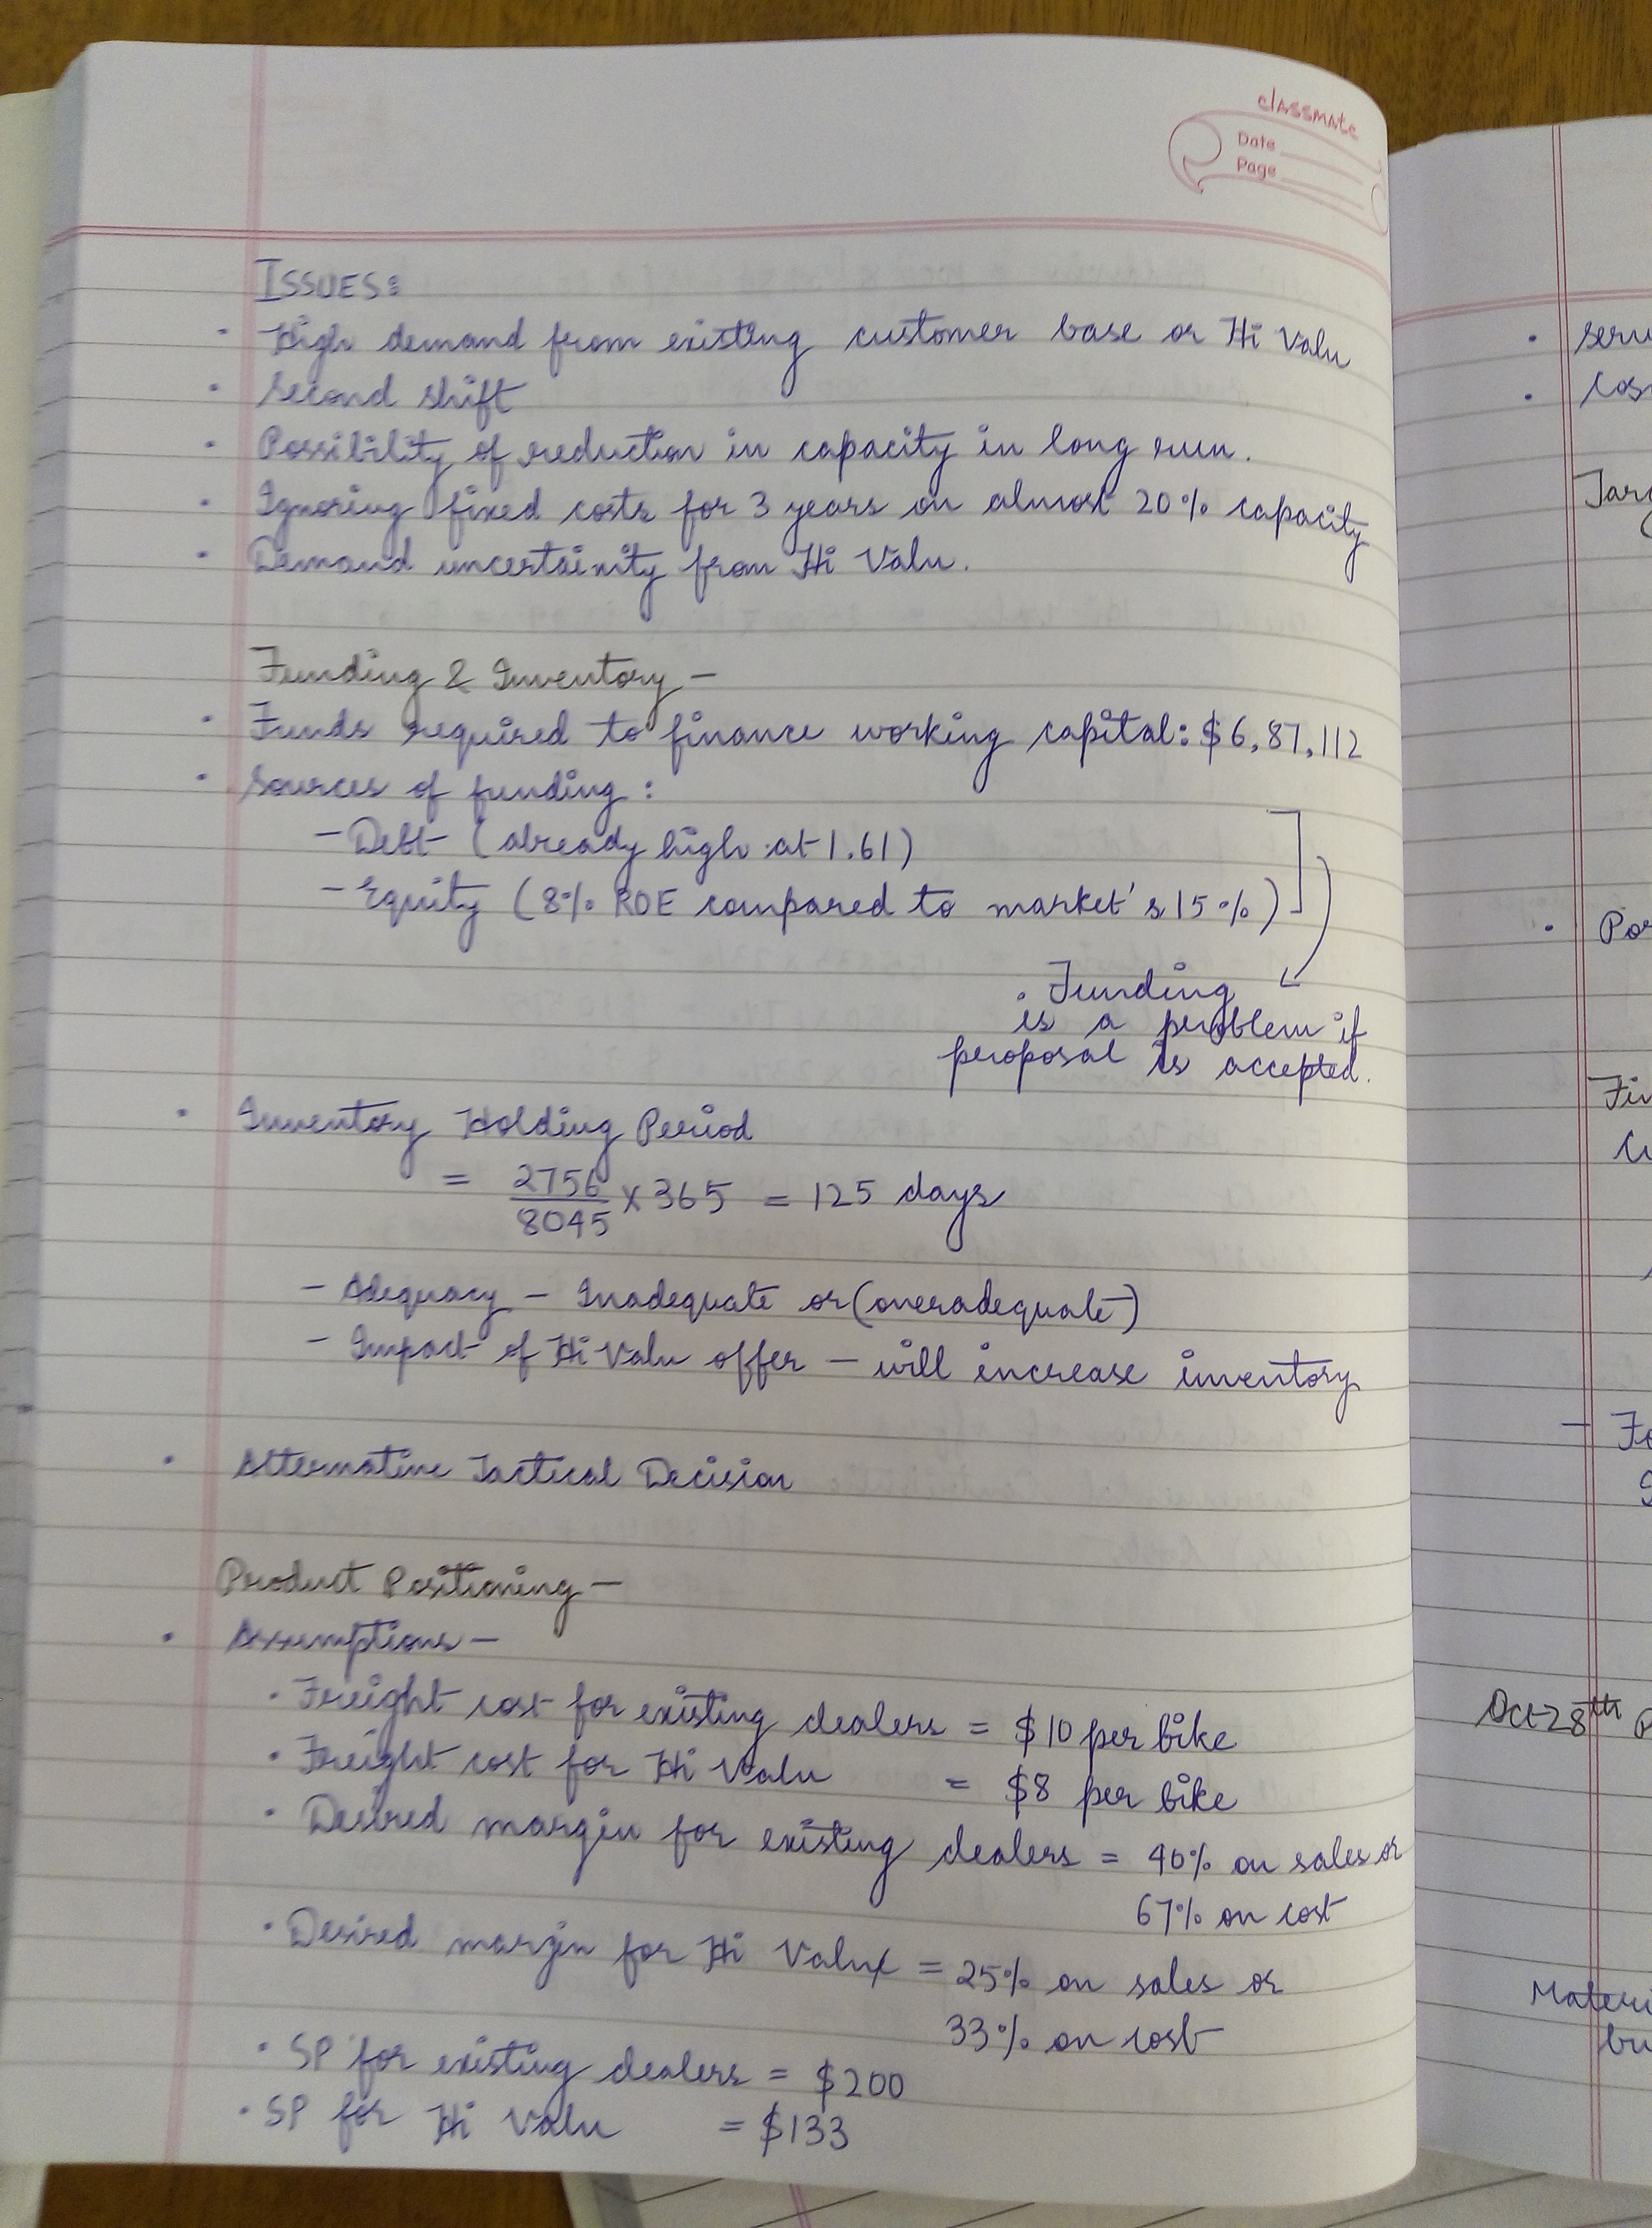 classmate
Date
Page
ISSUES:
• High demand from existing customer base or Hi Valu
• Second shift
• Possibility of reduction in capacity in long run.
• Ignoring fixed costs for 3 years on almost 20% capacity
• Demand uncertainity from Hi Valu.
Funding & Inventory –
• Funds required to finance working capital: $6,87,112
• Sources of funding:
– Debt (already high at 1.61)
– Equity (8% ROE compared to market's 15%)
• Funding
is a problem if
proposal is accepted.
• Inventory Holding Period
= 2756/8045 × 365 = 125 days
– Adequacy – Inadequate or (overadequate)
– Impact of Hi Valu offer – will increase inventory
• Alternative Tactical Decision
Product Positioning –
• Assumptions –
• Freight cost for existing dealers = $10 per bike
• Freight cost for Hi Valu = $8 per bike
• Desired margin for existing dealers = 40% on sales or
67% on cost
• Desired margin for Hi Valu = 25% on sales or
33% on cost
• SP for existing dealers = $200
• SP for Hi Valu = $133
Oct 28th